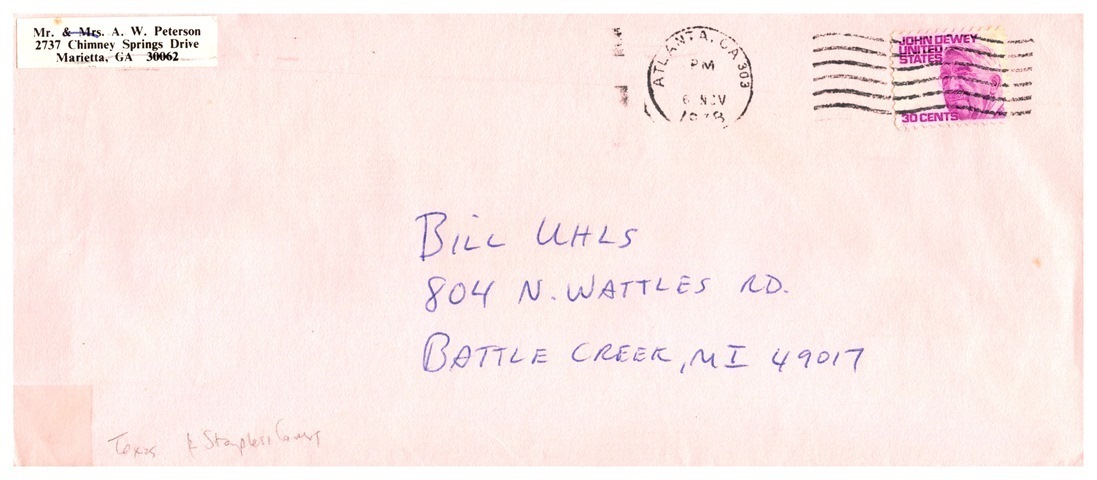 Mr. & Mrs. A. W. Peterson
2737 Chimney Springs Drive
Marietta, GA 30062
ATLANTA, GA 303
PM
6 NOV
1978
JOHN DEWEY
UNITED
STATES
30 CENTS
BILL UHLS
804 N. WATTLES RD.
BATTLE CREEK, MI 49017
Texas